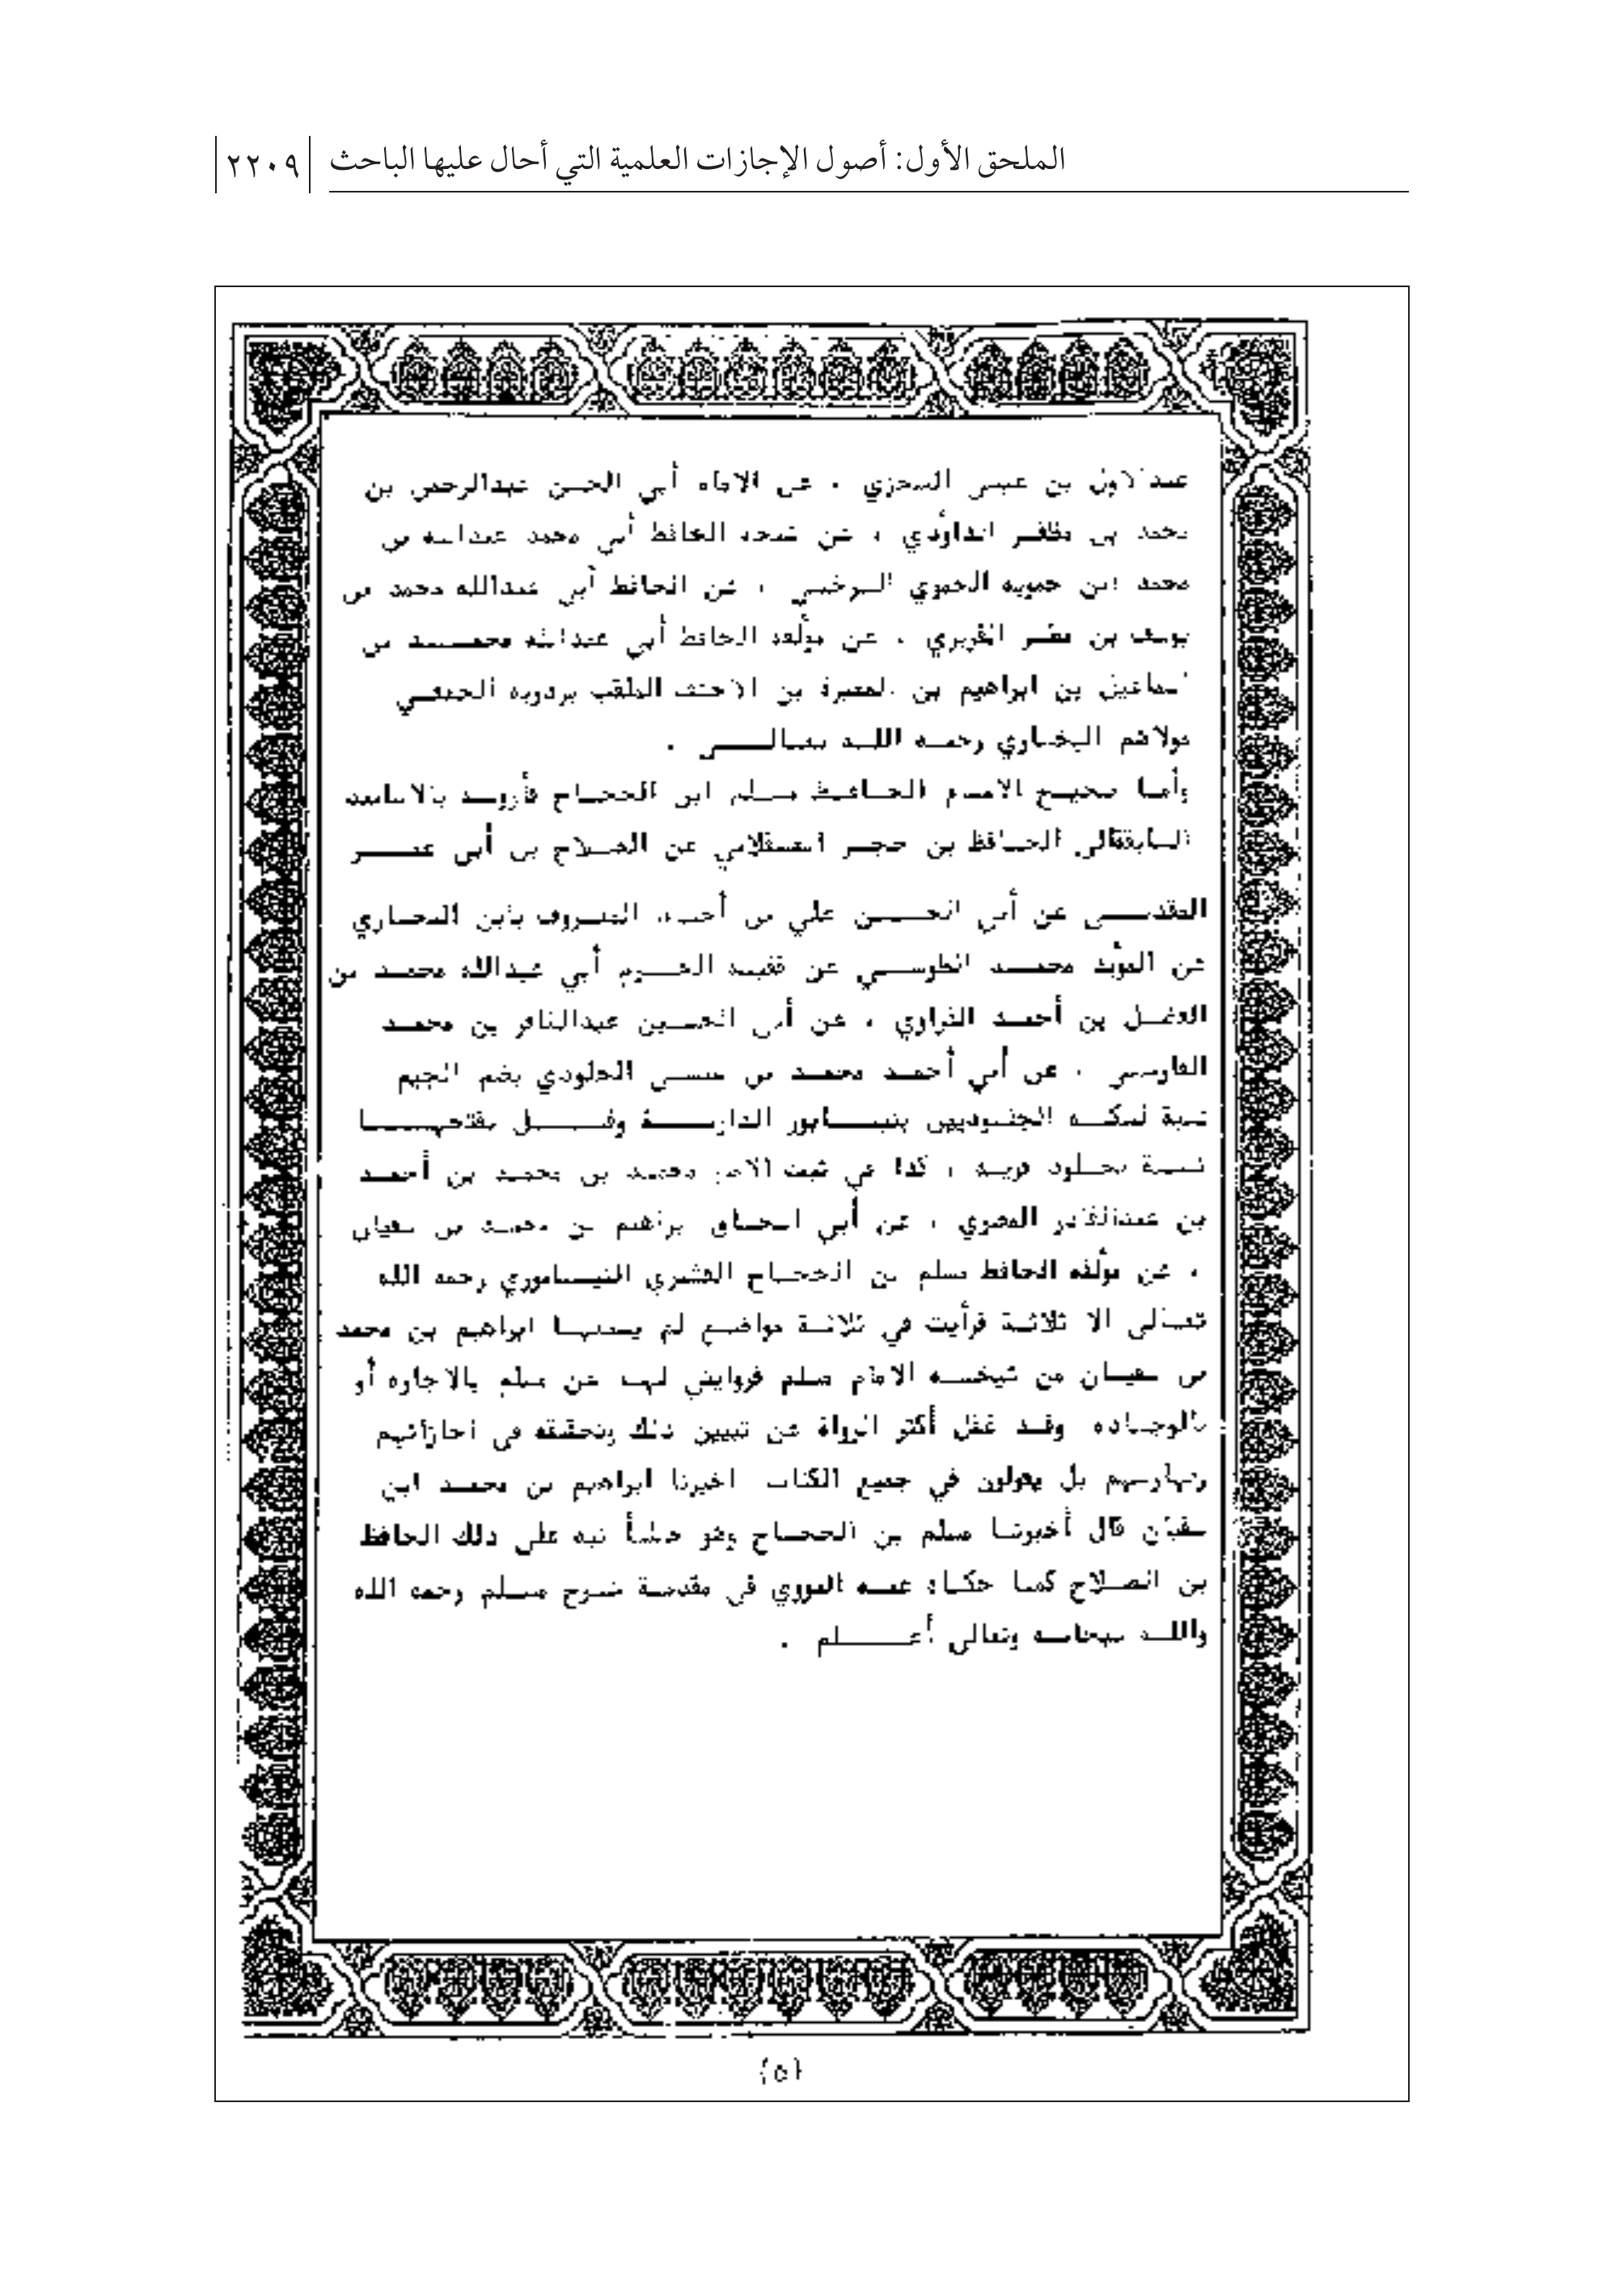 الملحق الأول: أصول الإجازات العلمية التي أحال عليها الباحث
٢٢٠٩
عبدالاول بن عيسى السجزي ، عن الامام أبي الحسن عبدالرحمن بن
محمد بن مظفر الداوُدي ، عن شيخه الحافظ أبي محمد عبدالله بن
محمد ابن حمويه الحموي السرخسي ، عن الحافظ أبي عبدالله محمد بن
يوسف بن مطر الفربري ، عن موُلفه الحافظ أبي عبدالله محمد بن
اسماعيل بن ابراهيم بن المغيرة بن الاحنف الملقب بردزبه الجعفي
مولاهم البخاري رحمه الله تعالى .
وأما صحيح الامام الحافظ مسلم ابن الحجاج فأرويه بالاسانيد
السابقةالى الحافظ بن حجر العسقلاني عن الصلاح بن أبي عمر
المقدسي عن أبي الحسن علي بن أحمد المعروف بابن البخاري
عن الموُيد محمد الطوسي عن فقيه الحرم أبي عبدالله محمد بن
الفضل بن أحمد الفراوي ، عن أبي الحسين عبدالغافر بن محمد
الفارسي ، عن أبي أحمد محمد بن عيسى الجلودي بضم الجيم
نسبة لسكة الجلوديين بنيسابور الدارسة وقيل بفتحها
نسبة بجلود قرية ، كذا في ثبت الامير محمد بن محمد بن أحمد
بن عبدالقادر المصري ، عن أبي اسحاق ابراهيم بن محمد بن سفيان
، عن موُلفه الحافظ مسلم بن الحجاج القشيري النيسابوري رحمه الله
تعالى الا ثلاثة فرأيت في ثلاثة مواضع لم يسمعها ابراهيم بن محمد
بن سفيان من شيخه الامام مسلم فروايتي لها عن مسلم بالاجازه أو
بالوجاده وقد غفل أكثر الرواة عن تبيين ذلك وتحقيقه في اجازاتهم
وفهارسهم بل يقولون في جميع الكتاب اخبرنا ابراهيم بن محمد ابن
سفيان قال أخبرنا مسلم بن الحجاج وهو خطأ نبه على ذلك الحافظ
بن الصلاح كما حكاه عنه النووي في مقدمة شرح مسلم رحمه الله
والله سبحانه وتعالى أعلم .
(٥)